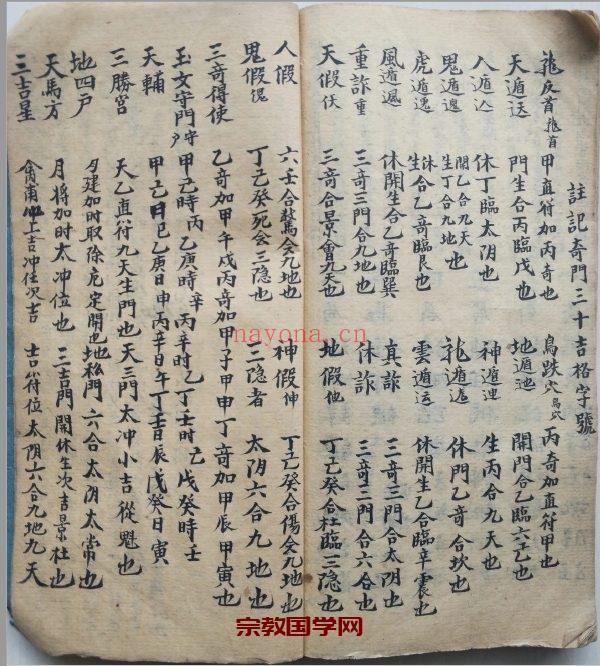 註記奇門三十吉格字號
龍反首龍首 甲直符加丙奇也 鳥跌穴鳥穴 丙奇加直符甲也
天遁 門生合丙臨戊也 地遁 開門合乙臨六己也
人遁 休丁臨太阴也 神遁 生丙合九天也
鬼遁 開乙合九天 生丁合九地也 龍遁 休門乙奇合坎也
虎遁 休生合乙奇臨艮也 雲遁 休開生乙合臨辛震也
風遁 休開生合乙奇臨巽 真詐 三奇三門合太阴也
重詐重 三奇三門合九地也 休詐 三奇三門合六合也
天假 三奇合景會九天也 地假 丁己癸合杜臨三隐也
人假 六壬合驚会九地也 神假 丁己癸合傷会九地也
鬼假 丁己癸死会三隐也 三隐者 太阴六合九地也
三奇得使 乙奇加甲午戌丙奇加甲子甲申丁奇加甲辰甲寅也
玉女守門 甲己時丙乙庚時辛丙辛時乙丁壬時己戊癸時壬
天輔 甲己日己巳乙庚日申丙辛日午丁壬日辰戊癸日寅
三勝宮 天乙直符九天生門也天三門太冲小吉從魁也
地四户 月建加時取除危定開也地私門六合太阴太常也
天馬方 月將加時太冲位也 三吉門開休生次吉景杜也
三吉星 上吉冲任次吉 吉符位太阴六合九地九天
nayona.cn
宗教国学网